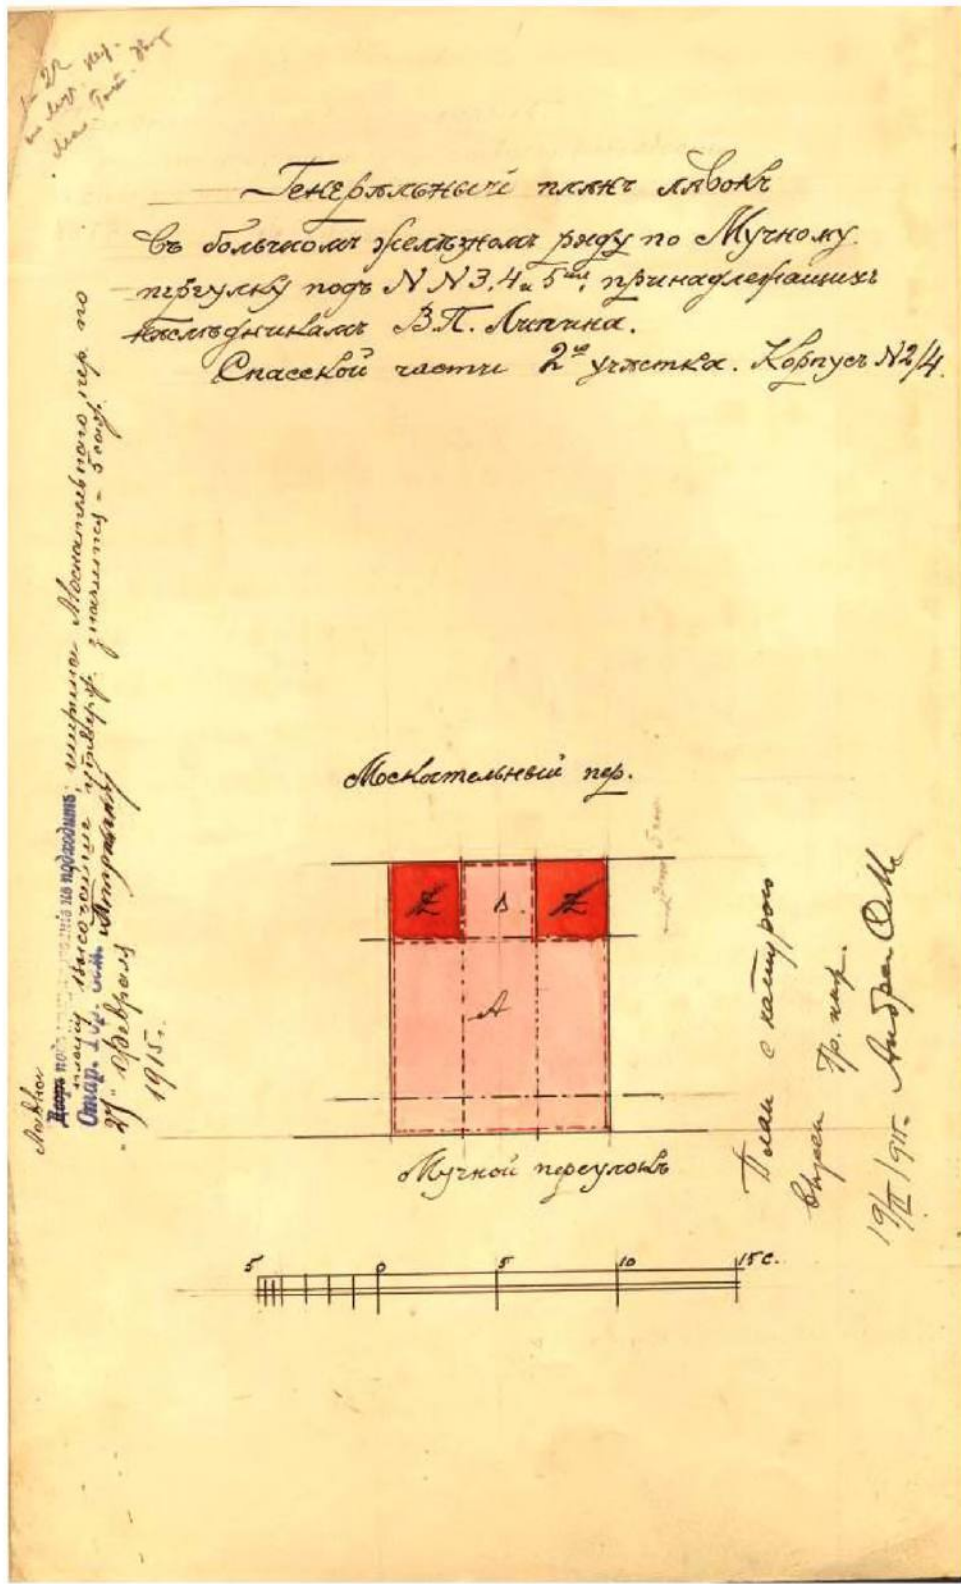 Генеральный планъ лавокъ
въ большомъ желѣзномъ ряду по Мучному
переулку подъ N N 3, 4 и 5ш, принадлежащихъ
наслѣдникамъ В. П. Липина.
Спасской части 2го участка. Корпусъ N 2/4.
ширина Москательнаго пер. по
плану высочайше утвержд. значится - 5 саж.
не подходитъ
Стар.
февраля
1915 г.
Москательный пер.
В.
А
Мучной переулокъ
План с натурою
вѣрен
19/II 1915.
5 0 5 10 15 с.